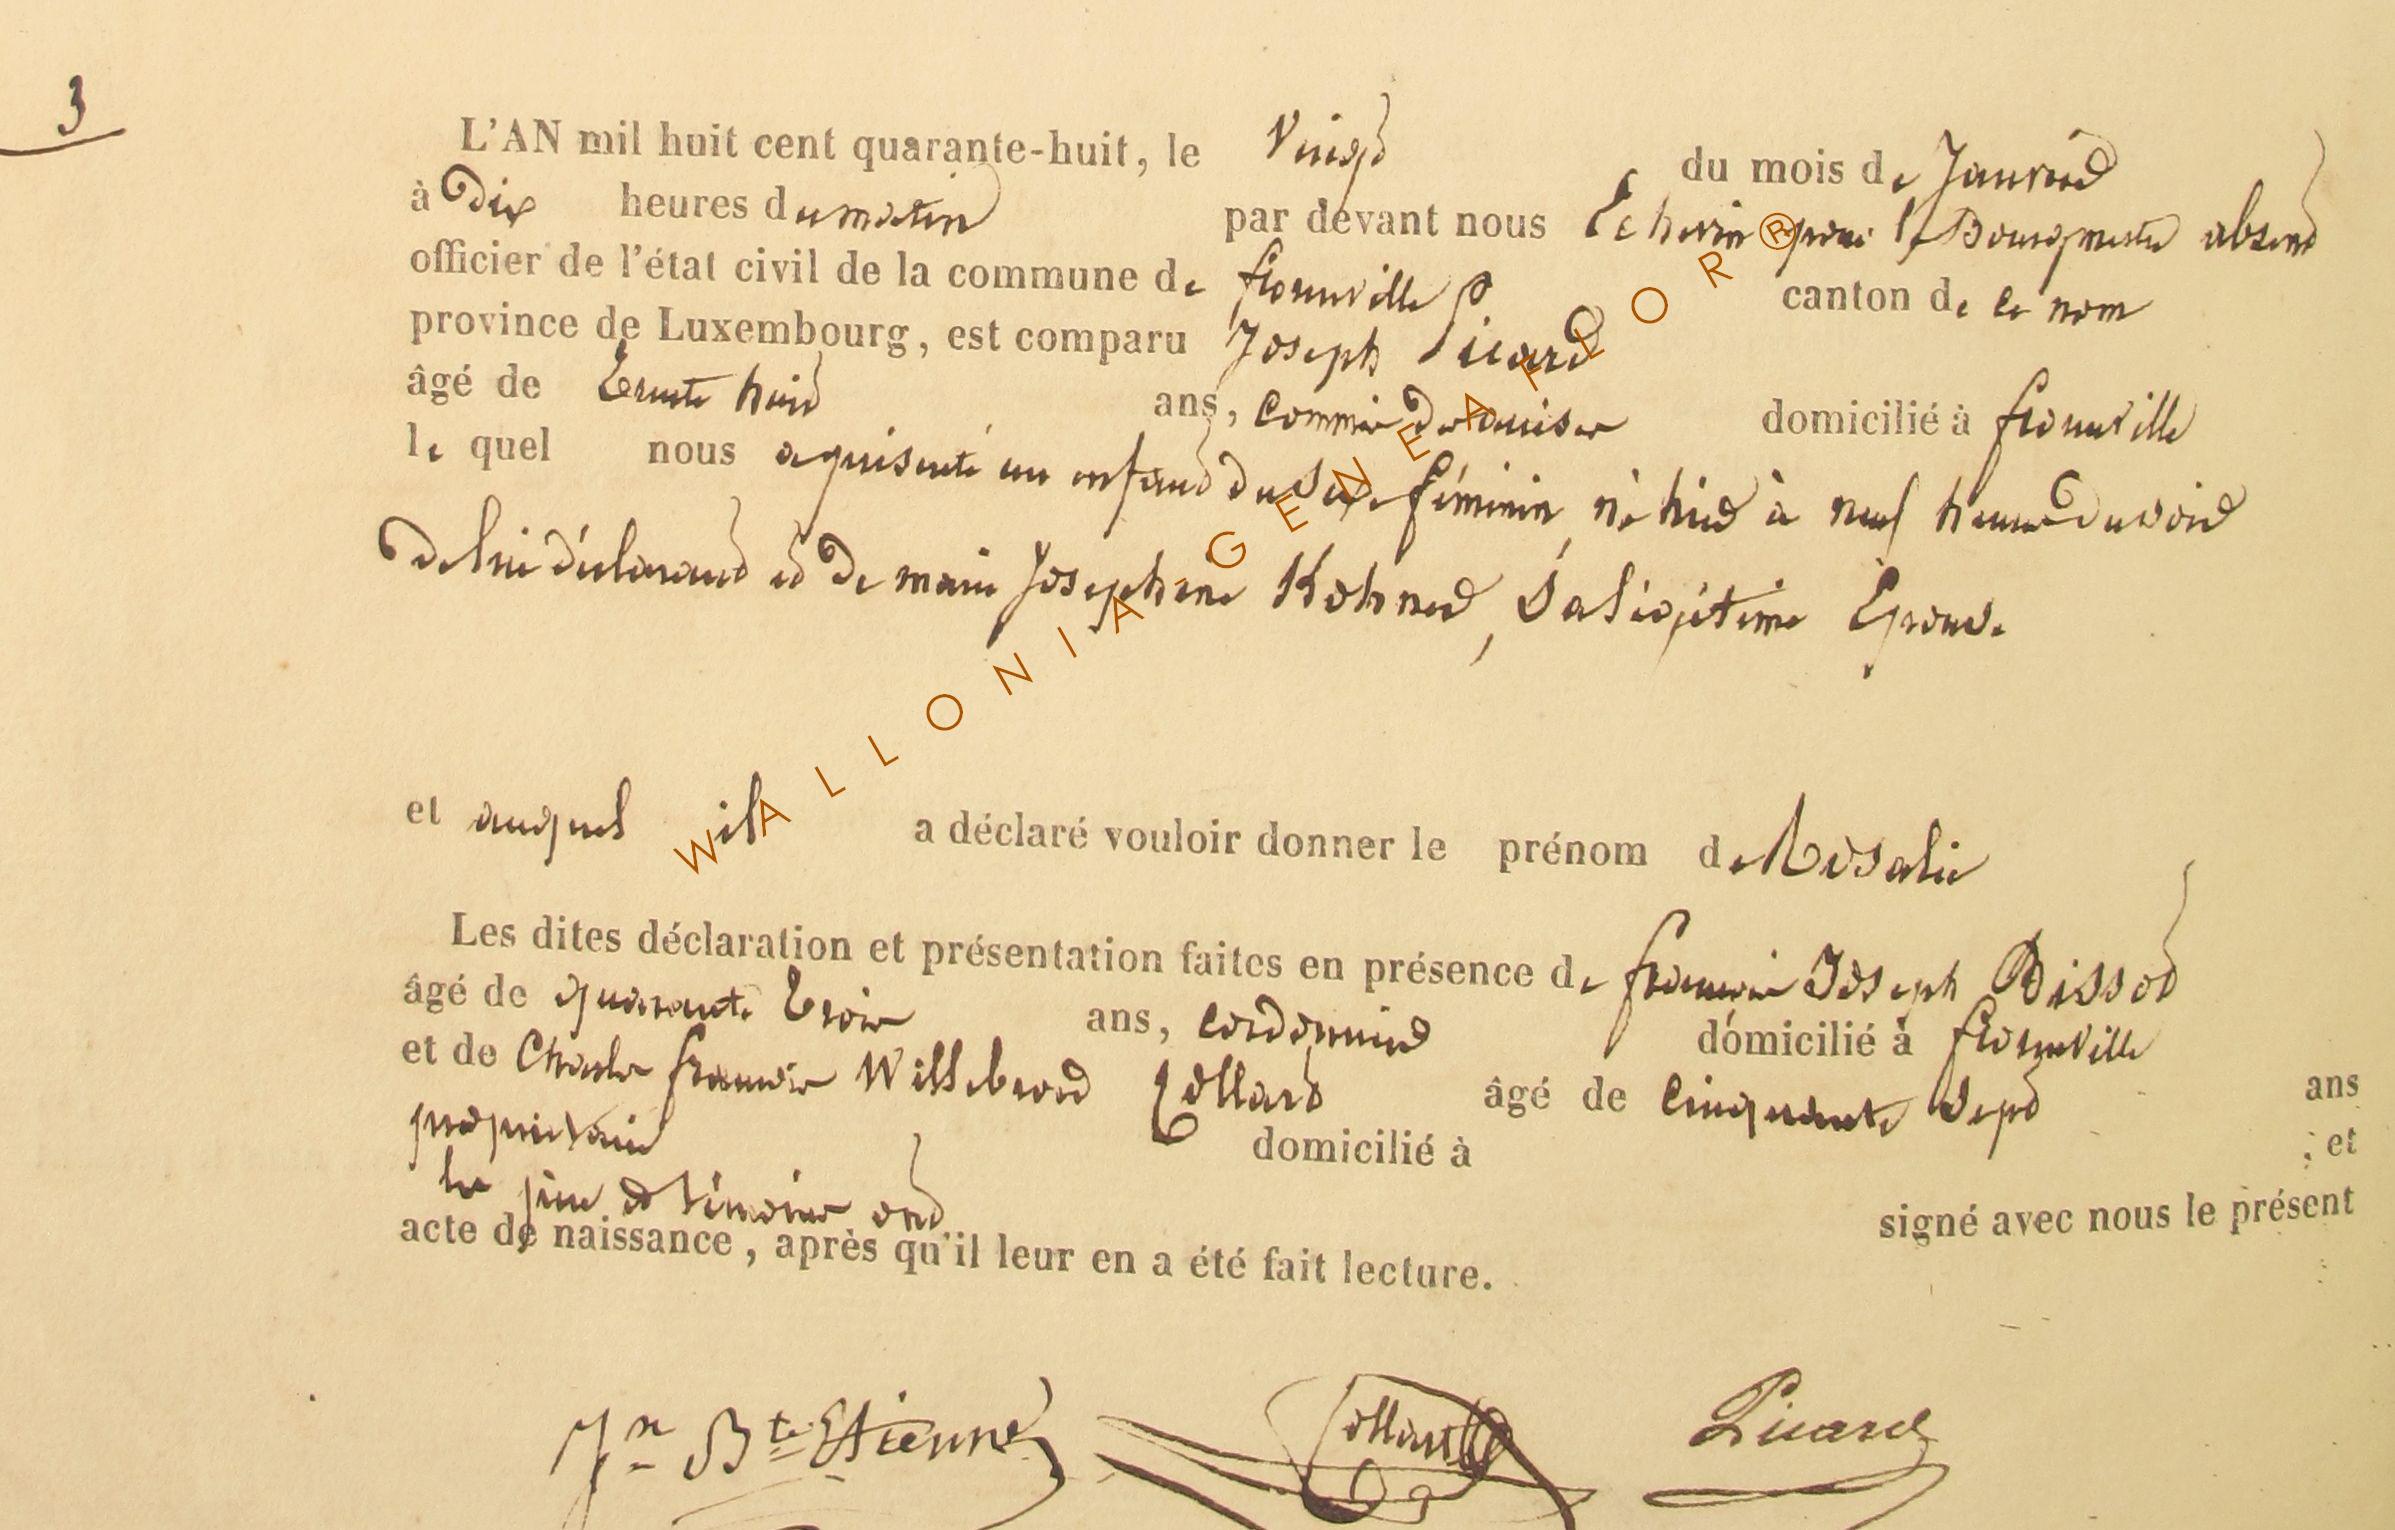 3
L'AN mil huit cent quarante-huit, le Vingt du mois de Janvier
à Dix heures du matin par devant nous Echevin pour le Bourgmestre absent
officier de l'état civil de la commune de florenville canton de ce nom
province de Luxembourg, est comparu Joseph Picard
âgé de trente huit ans, commis des douanes domicilié à florenville
le quel nous a présenté un enfant du sexe féminin, né hier à neuf heures du soir
de lui déclarant et de marie Josephine Kohner, Sa légitime Epouse
et auquel il a déclaré vouloir donner le prénom de Rosalie
Les dites déclaration et présentation faites en présence de françois Joseph Bissot
âgé de quarante trois ans, cordonnier domicilié à florenville
et de Charles françois Willebrord Collard âgé de cinquante sept ans
propriétaire domicilié à ; et
les père et témoins ont signé avec nous le présent
acte de naissance, après qu'il leur en a été fait lecture.
Jn Bte Etienne Collard Picard
WALLONIA-GENEAFLOR®